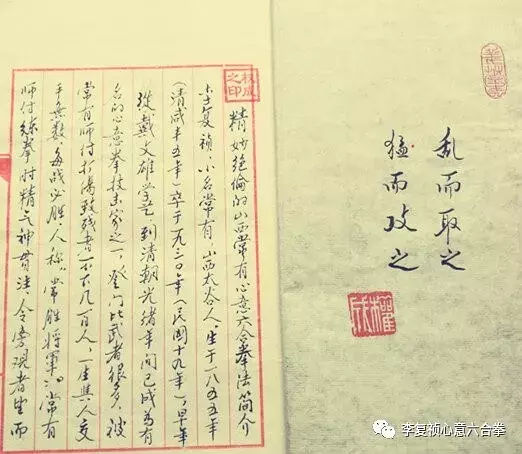 乱而取之
猛而攻之
權成
权成之印
精妙绝倫的山西常有心意六合拳法简介
李复祯,小名常有,山西太谷人,生于一八五五年
(清咸丰五年)卒于一九三〇年(民国十九年),早年
從戴文雄学艺,到清朝光绪年间已成为有
名的心意拳技击家之一,登门比武者很多,被
常有师付打傷致残者一不下几百人,一生與人交
手無数,每战必胜,人称“常胜将軍”。常有
师付练拳时精气神贯注,令旁观者望而
李复祯心意六合拳